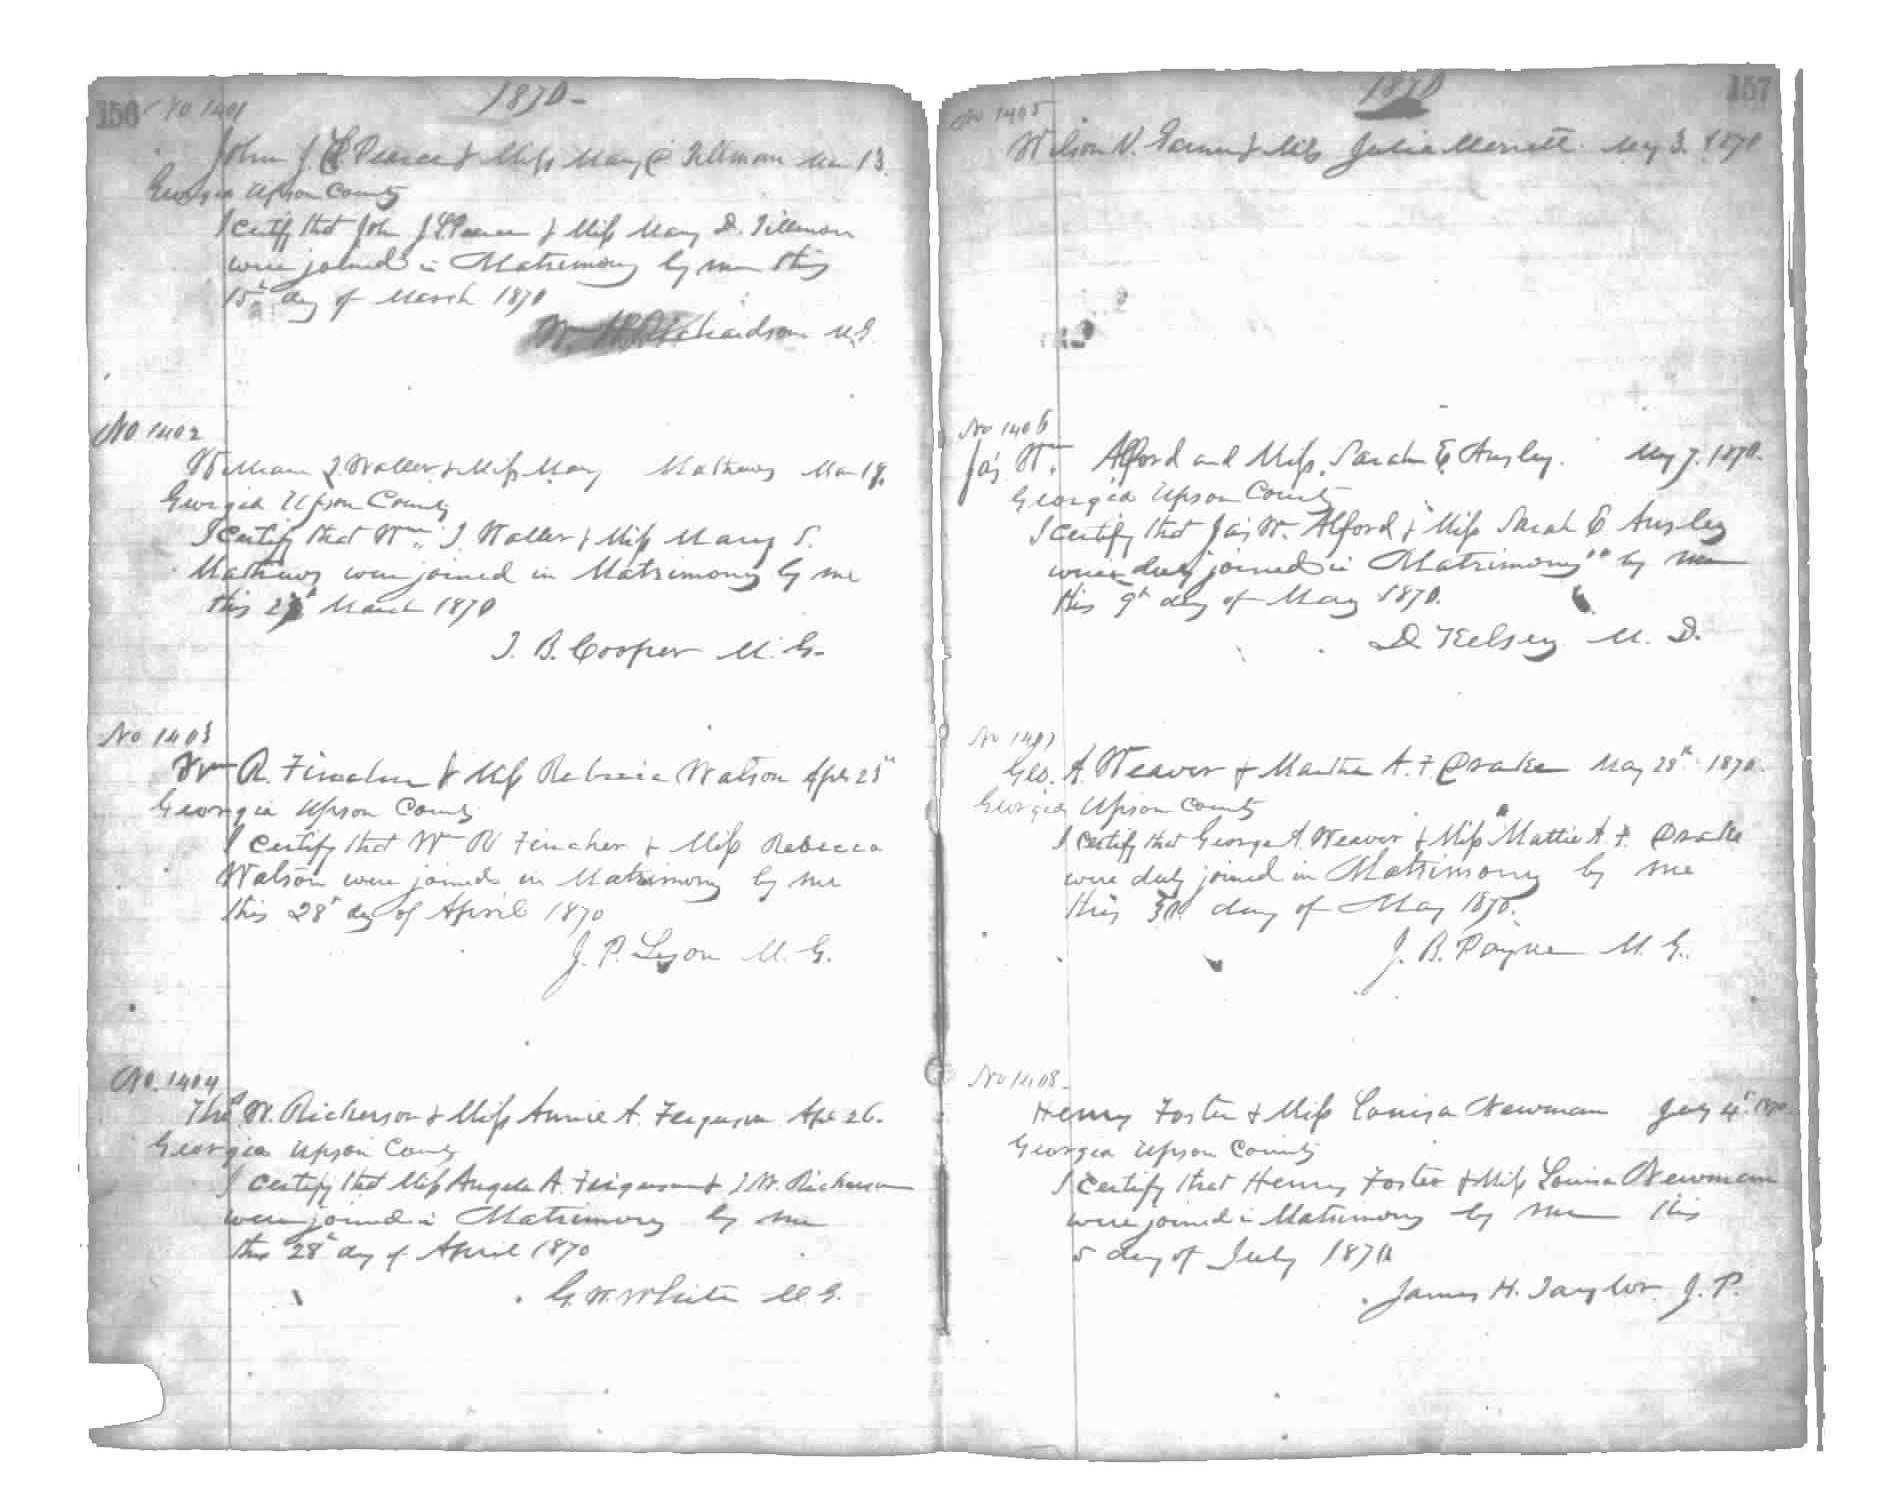 156 No 1401 1870-
John J. L. Pearce & Miss Mary C Tillman Mar 13.
Georgia Upson County
I certify that John J L Pearce & Miss Mary D. Tillman
were joined in Matrimony by me this
15th day of March 1870
Wm H. Richardson M.G.
No 1402
William J. Waller & Miss Mary Mathews Mar 18.
Georgia Upson County
I certify that Wm J. Waller & Miss Mary S.
Mathews were joined in Matrimony by me
this March 1870
J. B. Cooper M. G.
No 1403
Wm R. Fincher & Miss Rebecca Watson Apr 25th
Georgia Upson County
I certify that Wm R Fincher & Miss Rebecca
Watson were joined in Matrimony by me
this 28th day of April 1870
J. P. Lyon M. G.
No. 1404
Thos W. Rickerson & Miss Annie A. Ferguson Apr 26.
Georgia Upson County
I certify that Miss Angela A. Ferguson & T. W. Rickerson
were joined in Matrimony by me
this 28th day of April 1870
G. W. White M G.
1870 157
No 1405
Wilson N. & Miss Julia Merrett. May 3. 1870
No 1406
Jas Wm Alford and Miss Sarah E Ansley. May 7. 1870.
Georgia Upson County
I certify that Jas W. Alford & Miss Sarah E Ansley
were duly joined in Matrimony by me
this 9th day of May 1870.
D. Kelsey M. D.
No 1407
Geo. A. Weaver & Martha A. F. Drake May 28th 1870.
Georgia Upson County
I certify that George A. Weaver & Miss Mattie A. F. Drake
were duly joined in Matrimony by me
this 30 day of May 1870.
J. B. Payne M. G.
No 1408.
Henry Foster & Miss Louisa Newman July 4th 1870
Georgia Upson County
I certify that Henry Foster & Miss Louisa Newman
were joined in Matrimony by me this
5 day of July 1870
James H. Taylor J. P.